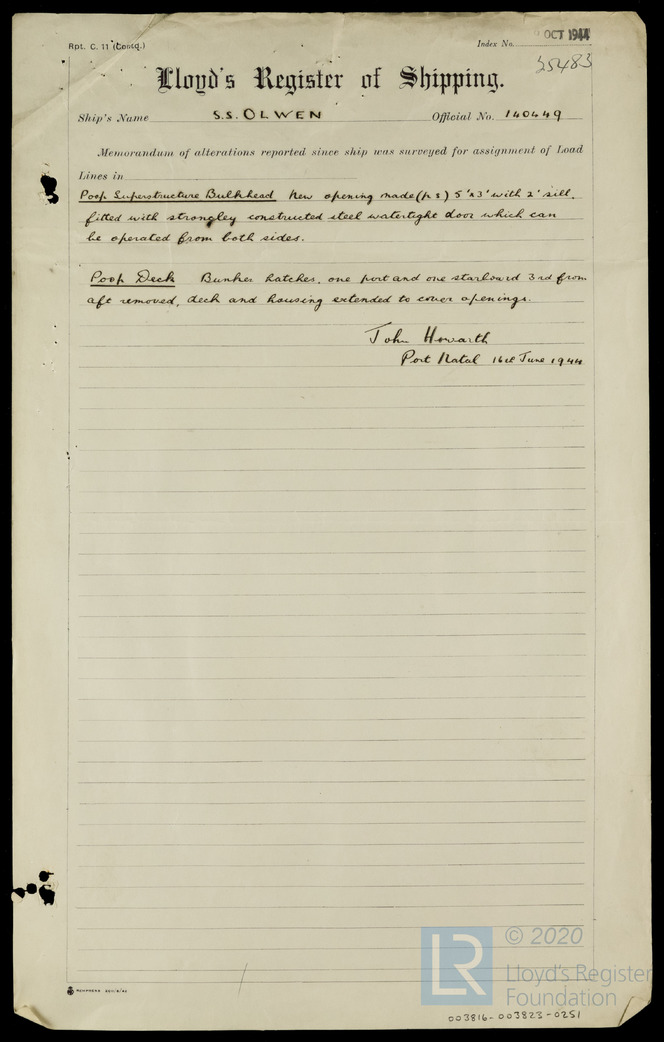 Rpt. C. 11 (Contd.)
Index No. OCT 1944
35483
Lloyd's Register of Shipping.
Ship's Name S.S. OLWEN Official No. 140449
Memorandum of alterations reported since ship was surveyed for assignment of Load
Lines in
Poop Superstructure Bulkhead New opening made (p s) 5' x 3' with 2' sill,
fitted with strongley constructed steel watertight door which can
be operated from both sides.
Poop Deck Bunker hatches, one port and one starboard 3rd from
aft removed, deck and housing extended to cover openings.
John Howarth
Port Natal 16th June 1944
© 2020
LR
Lloyd's Register
Foundation
003816-003823-0251